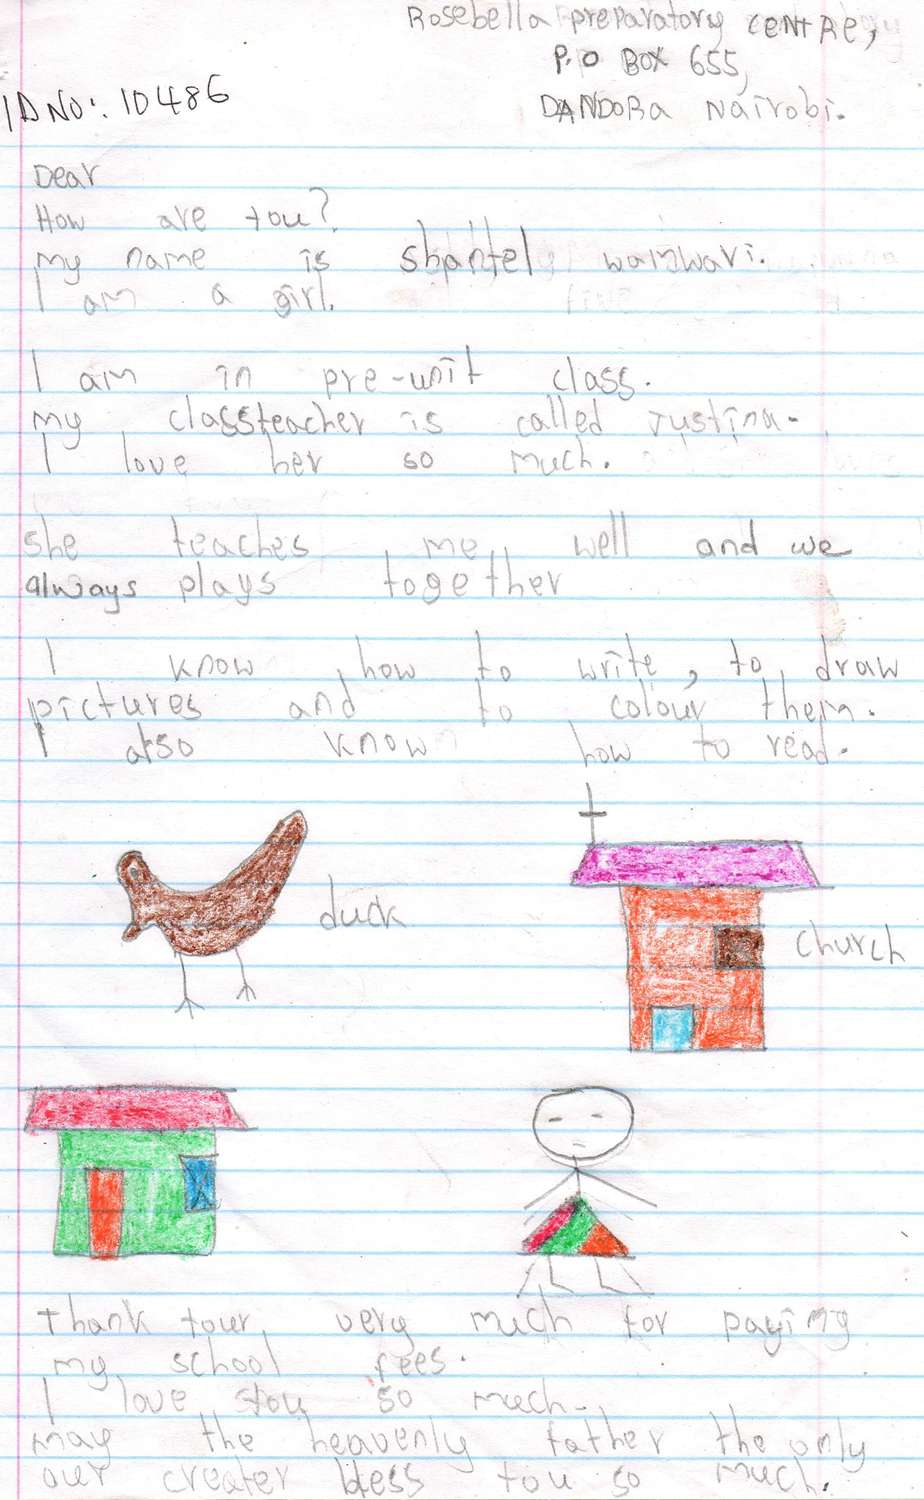 Rosebella preparatory CENTRE,
P.O BOX 655,
IDNO: 10486
DANDORA Nairobi.
Dear
How are you?
my name is shantel wamwari.
I am a girl.
I am in pre-unit class.
my classteacher is called justina.
I love her so much.
she teaches me well and we
always plays together
I know how to write, to draw
pictures and to colour them.
I also know how to read.
duck
church
thank your very much for paying
my school fees.
I love you so much.
may the heavenly father the only
our creater bless you so much.